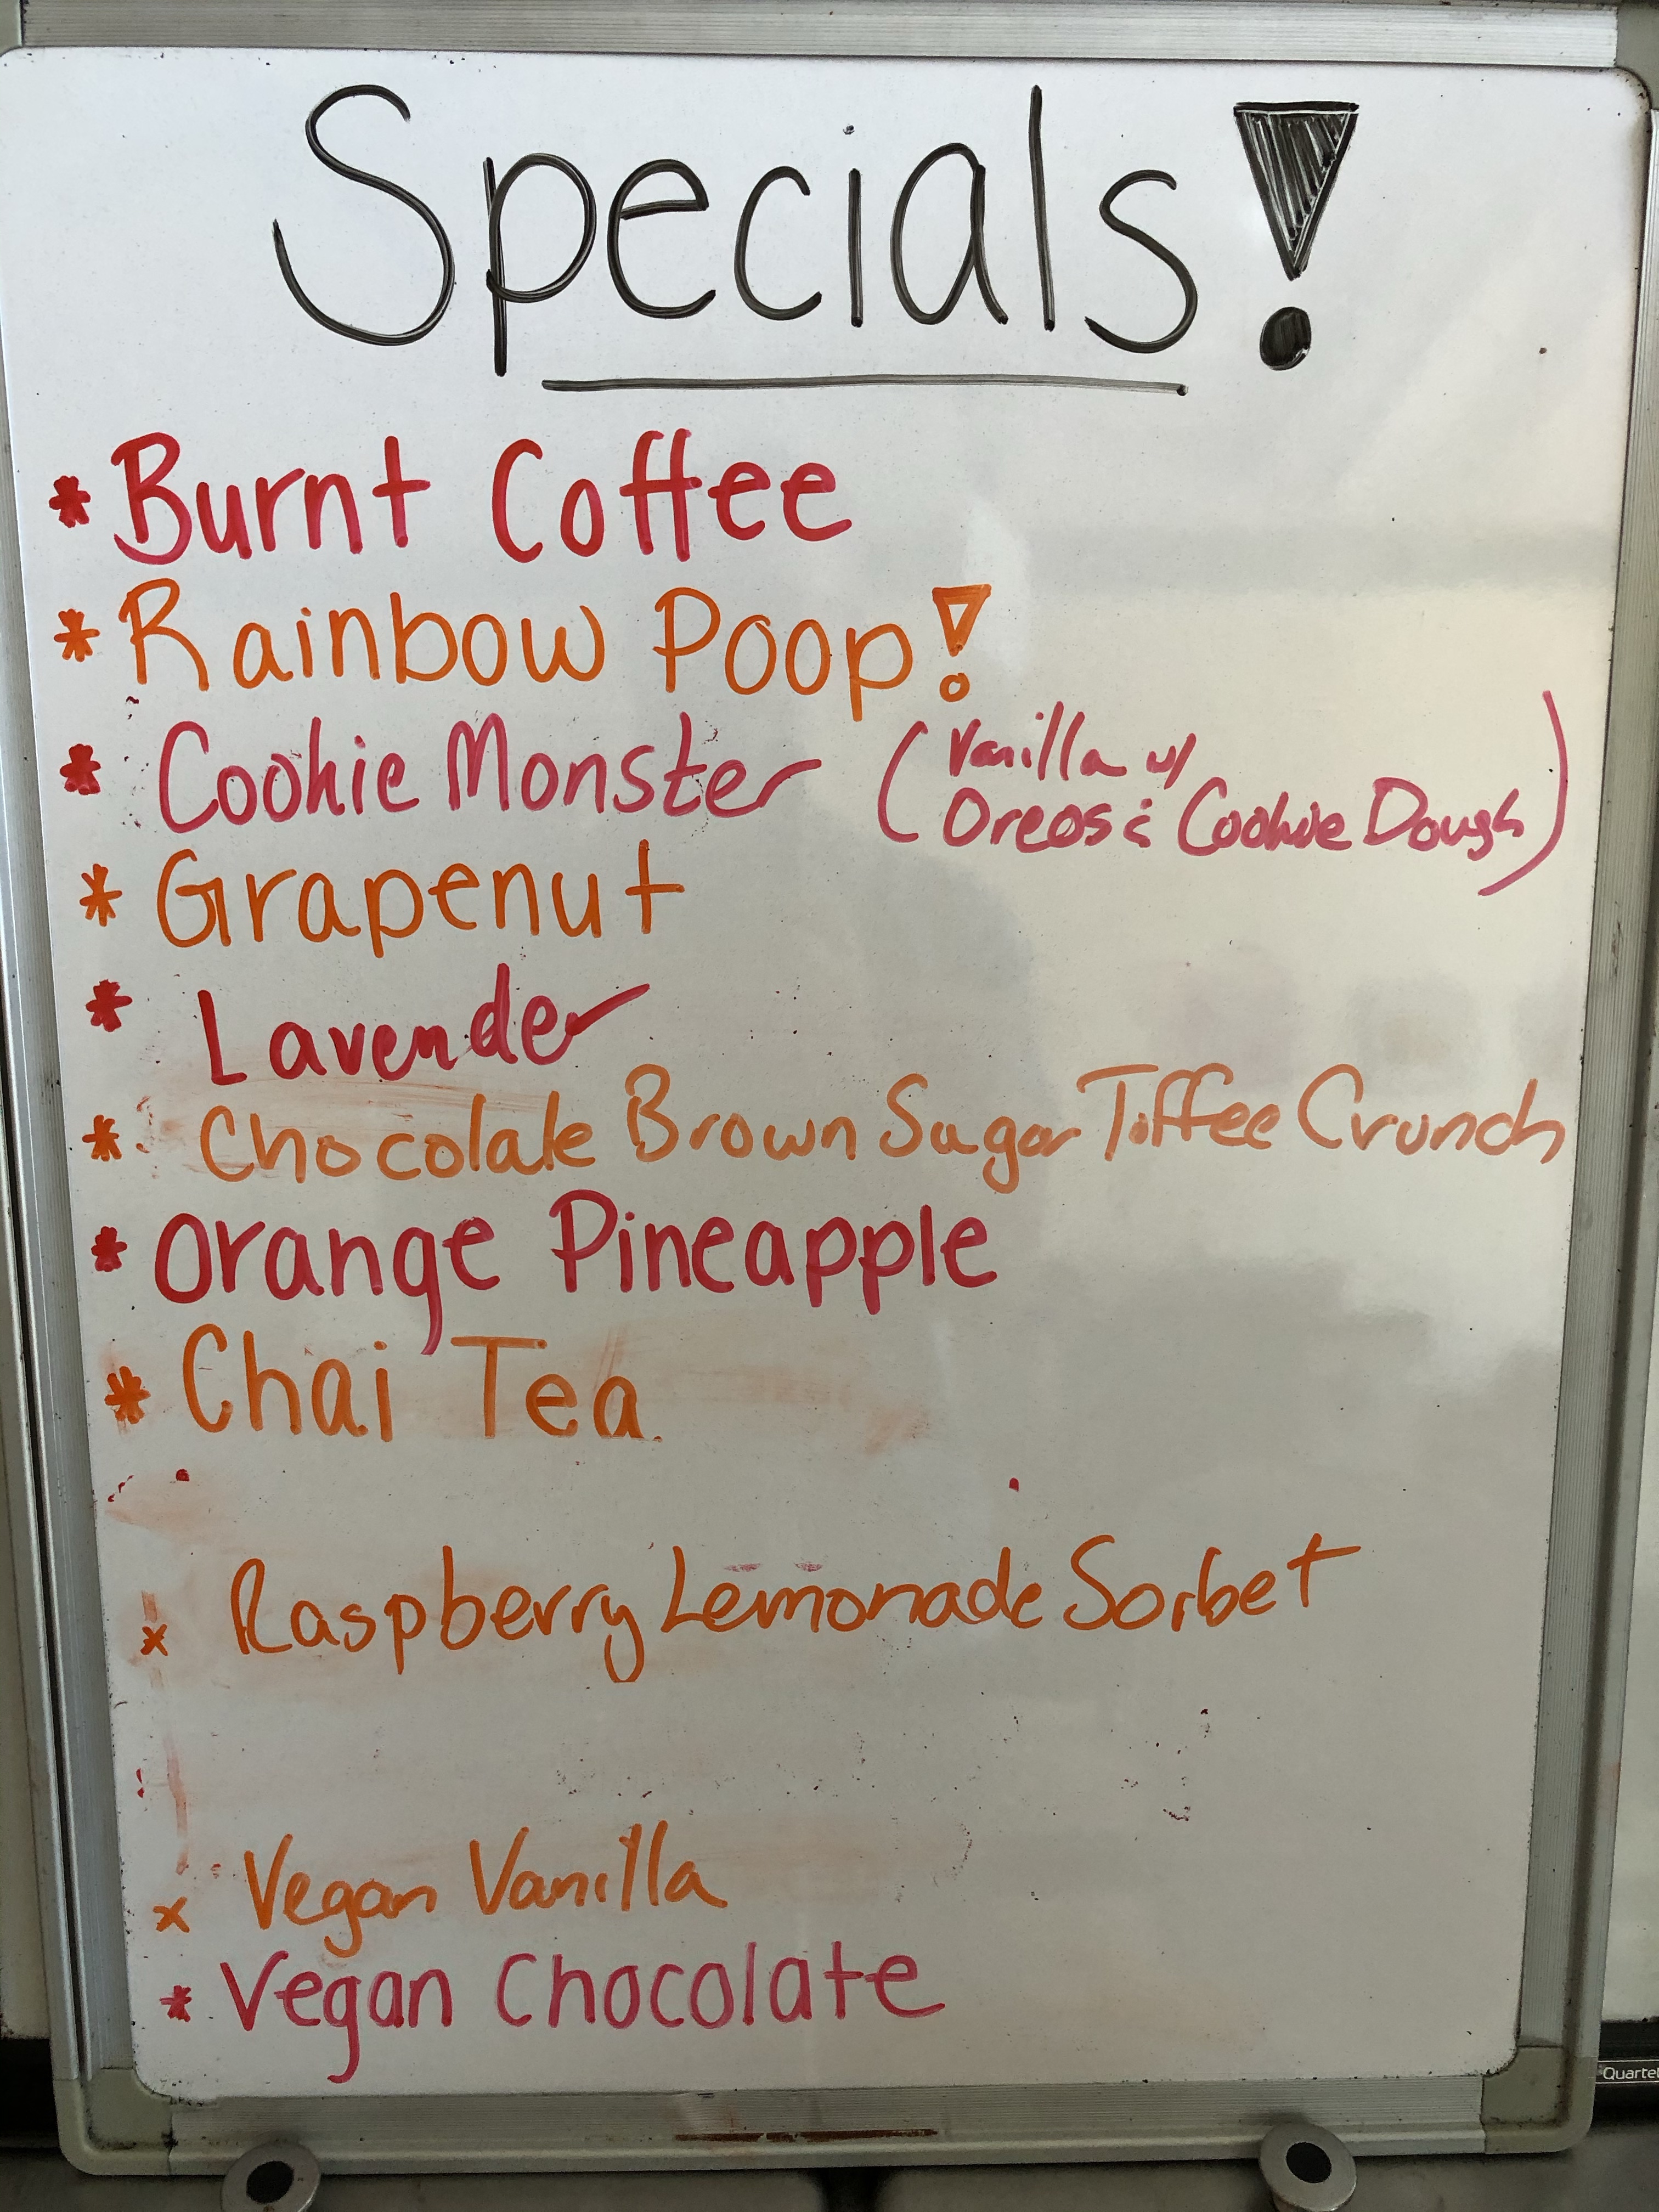 Specials!
* Burnt Coffee
* Rainbow Poop!
* Cookie Monster (Vanilla w/
Oreos & Cookie Dough)
* Grapenut
* Lavender
* Chocolate Brown Sugar Toffee Crunch
* Orange Pineapple
* Chai Tea
x Raspberry Lemonade Sorbet
x Vegan Vanilla
* Vegan Chocolate
Quartet